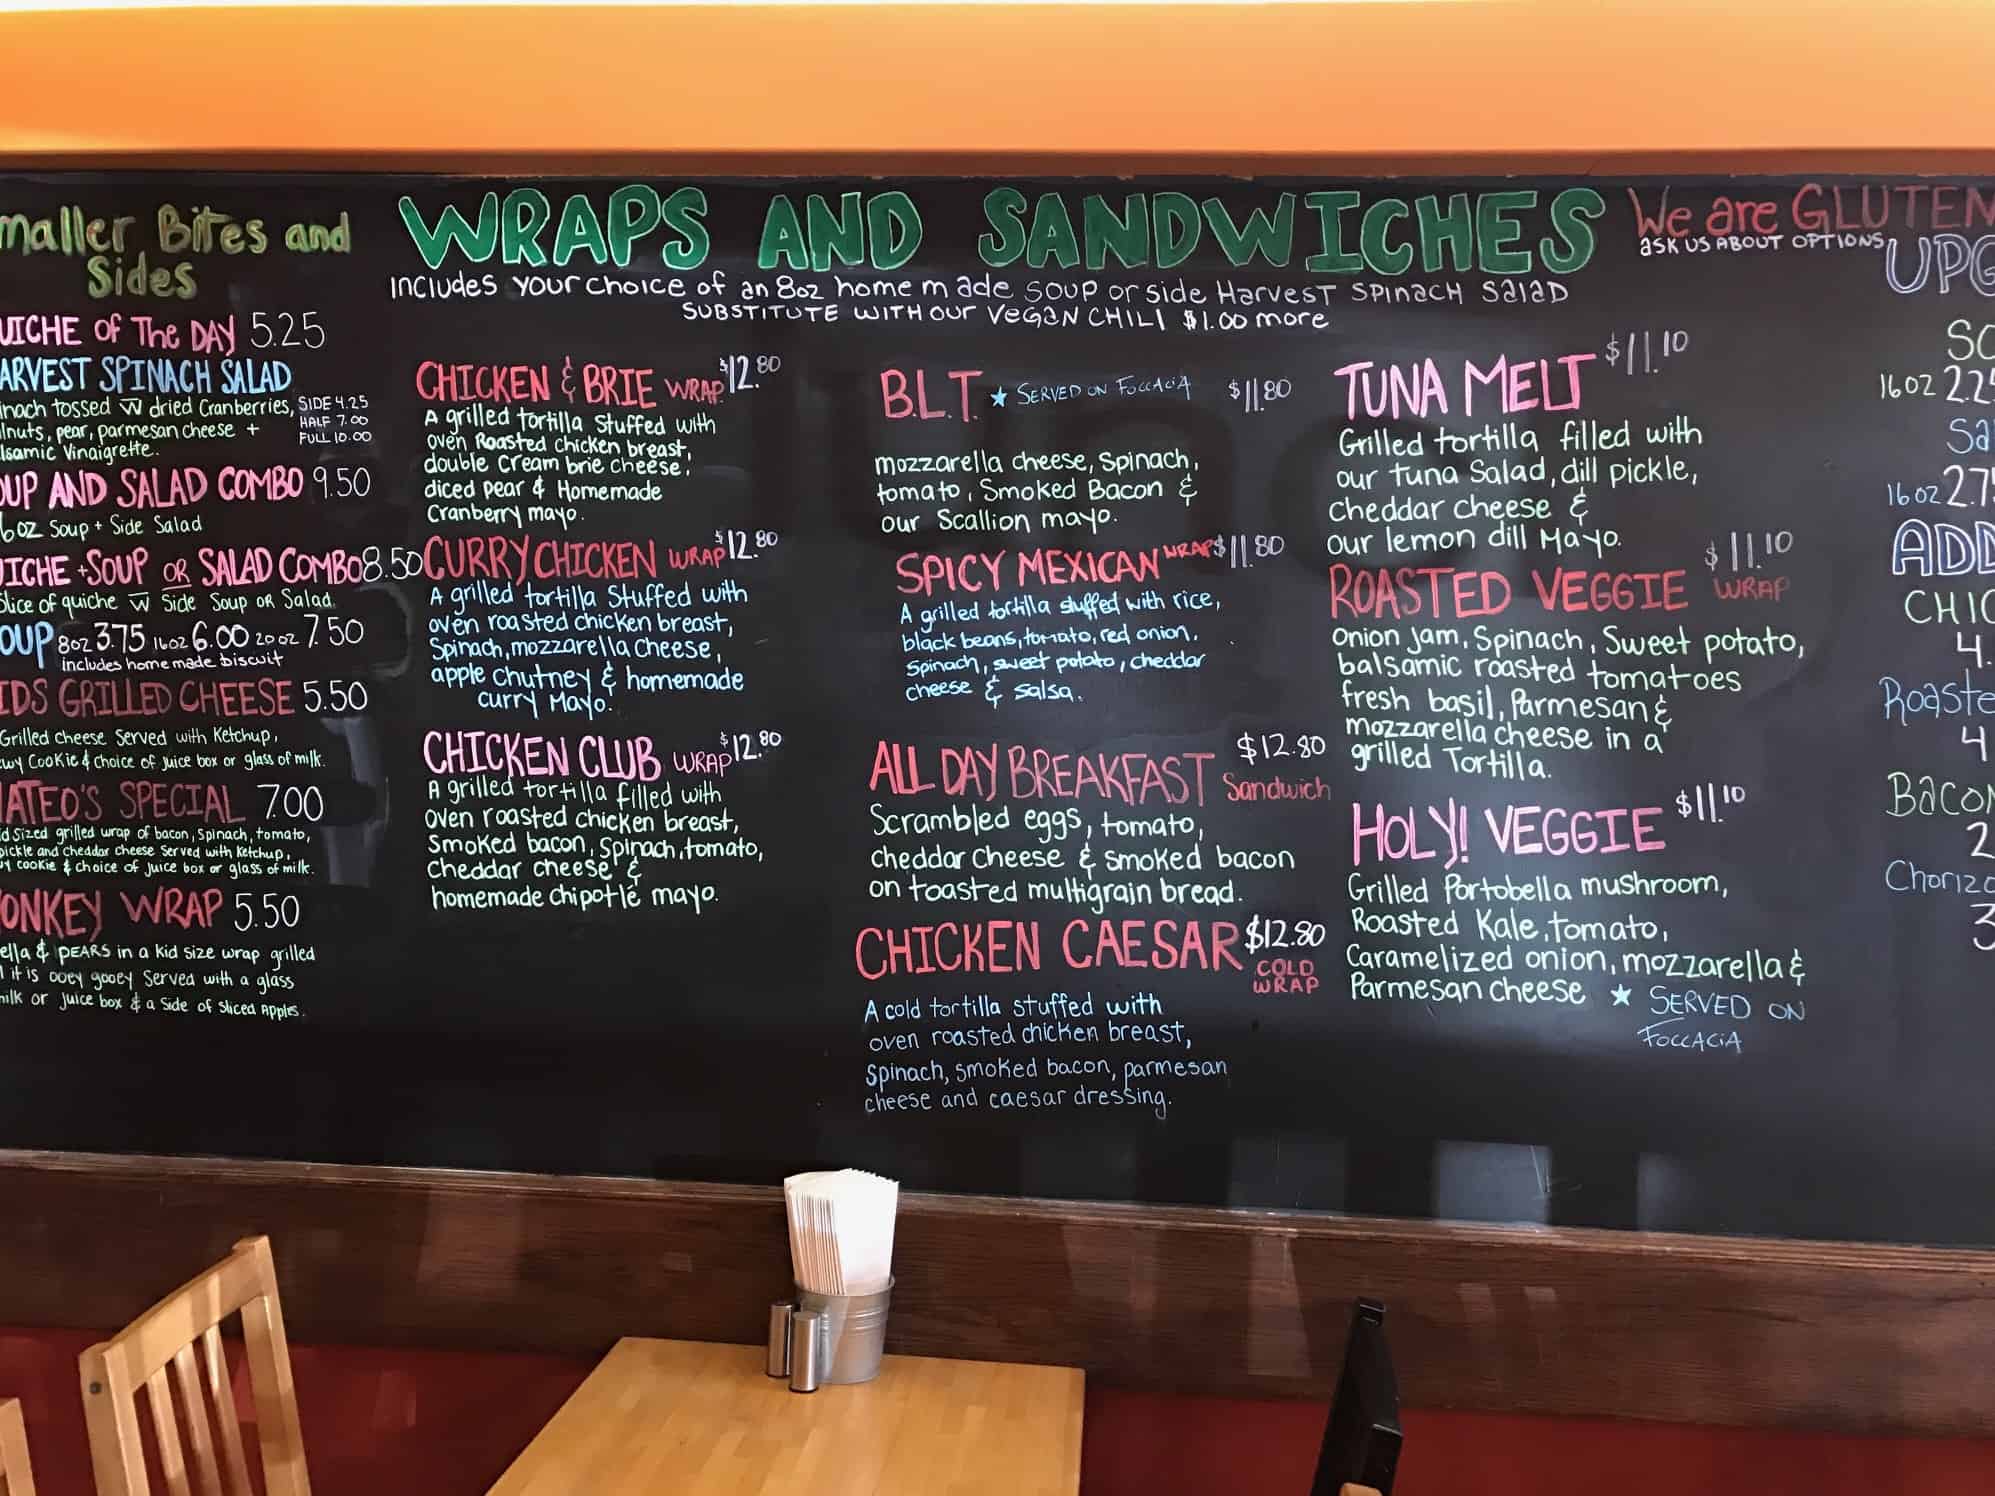 maller Bites and
Sides
UICHE of The DAY 5.25
ARVEST SPINACH SALAD
inach tossed w dried Cranberries, SIDE 4.25
lnuts, pear, parmesan cheese + HALF 7.00
lsamic Vinaigrette. FULL 10.00
OUP AND SALAD COMBO 9.50
6oz Soup + Side Salad
UICHE +SOUP OR SALAD COMBO 8.50
Slice of quiche w Side Soup OR Salad
OUP 8oz 3.75 16oz 6.00 20oz 7.50
includes home made biscuit
IDS GRILLED CHEESE 5.50
Grilled cheese Served with Ketchup,
wy Cookie & choice of juice box or glass of milk.
ATEO'S SPECIAL 7.00
d Sized grilled wrap of bacon, Spinach, tomato,
pickle and cheddar cheese Served with Ketchup,
y cookie & choice of juice box or glass of milk.
ONKEY WRAP 5.50
ella & PEARS in a kid size wrap grilled
l it is ooey gooey Served with a glass
milk or juice box & a side of Sliced Apples.
WRAPS AND SANDWICHES
INCLUDES YOUR CHOICE of an 8oz home made SOUP or side Harvest SPINACH Salad
SUBSTITUTE WITH OUR VEGAN CHILI $1.00 more
CHICKEN & BRIE WRAP $12.80
A grilled tortilla Stuffed with
oven Roasted chicken breast,
double cream brie cheese,
diced pear & Homemade
Cranberry mayo.
CURRY CHICKEN WRAP $12.80
A grilled tortilla Stuffed with
oven roasted chicken breast,
Spinach, mozzarella cheese,
apple chutney & homemade
curry Mayo.
CHICKEN CLUB WRAP $12.80
A grilled tortilla filled with
oven roasted chicken breast,
Smoked bacon, Spinach, tomato,
Cheddar cheese &
homemade chipotle mayo.
B.L.T. ★ SERVED ON FOCCACIA $11.80
mozzarella cheese, Spinach,
tomato, Smoked Bacon &
our Scallion mayo.
SPICY MEXICAN WRAP $11.80
A grilled tortilla stuffed with rice,
black beans, tomato, red onion,
Spinach, sweet potato, cheddar
cheese & salsa.
ALL DAY BREAKFAST $12.80
Sandwich
Scrambled eggs, tomato,
cheddar cheese & smoked bacon
on toasted multigrain bread.
CHICKEN CAESAR $12.80
COLD
WRAP
A cold tortilla stuffed with
oven roasted chicken breast,
Spinach, smoked bacon, parmesan
cheese and caesar dressing.
TUNA MELT $11.10
Grilled tortilla filled with
our tuna Salad, dill pickle,
cheddar cheese &
our lemon dill Mayo.
ROASTED VEGGIE $11.10
WRAP
Onion Jam, Spinach, Sweet potato,
balsamic roasted tomatoes
fresh basil, Parmesan &
mozzarella cheese in a
grilled Tortilla.
HOLY! VEGGIE $11.10
Grilled Portobella mushroom,
Roasted Kale, tomato,
Caramelized onion, mozzarella &
Parmesan cheese ★ SERVED ON
FOCCACIA
We are GLUTEN
ASK US ABOUT OPTIONS
UPG
SO
16oz 2.25
Sa
16oz 2.75
ADD
CHIC
4.
Roaste
4
Bacon
2
Chorizo
3